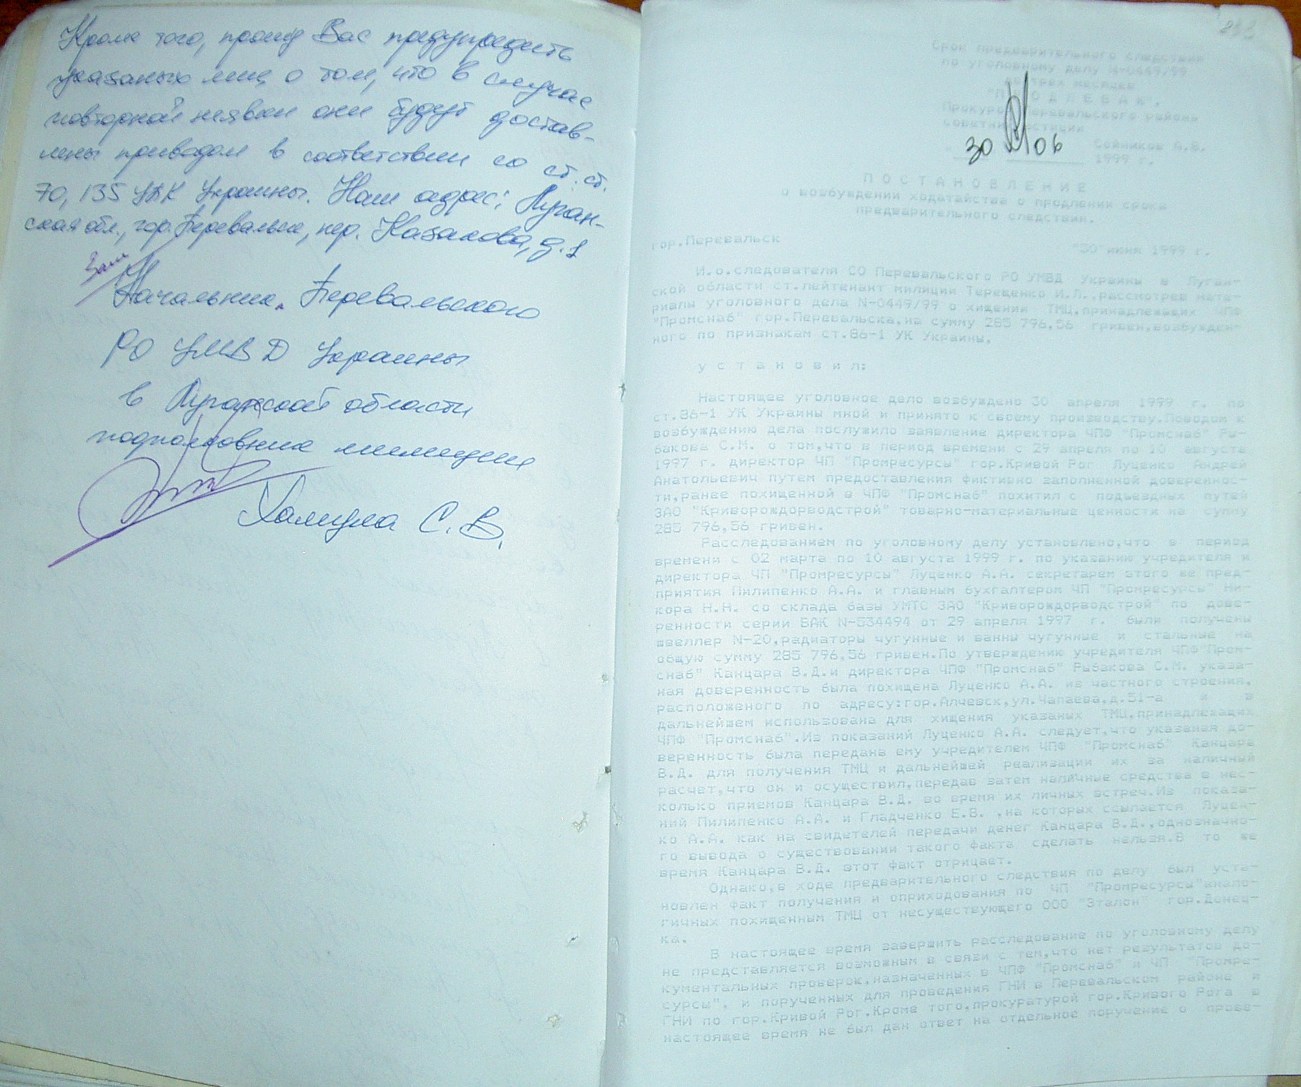 Кроме того, прошу Вас предупредить
указаных лиц о том, что в случае
повторной неявки они будут достав-
лены приводом в соответствии со ст.ст.
70, 135 УПК Украины. Наш адрес: Луган-
ская обл., гор. Перевальск, пер. , д.1
Зам
Начальник Перевальского
РО УМВД Украины
в Луганской области
подполковник милиции
С. В.
Срок предварительного следствия
по уголовному делу N-0449/99
месяцев
"П Р О Д Л Е В А Ю",
Прокурор Перевальского района
советник юстиции
А.В.
30 06 1999 г.
П О С Т А Н О В Л Е Н И Е
о возбуждении ходатайства о продлении срока
предварительного следствия.
гор.Перевальск "30"июня 1999 г.
И.о.следователя СО Перевальского РО УМВД Украины в Луган-
ской области ст.лейтенант милиции Терещенко И.Л.,рассмотрев мате-
риалы уголовного дела N-0449/99 о хищении ТМЦ,принадлежащих ЧПФ
"Промснаб" гор.Перевальска,на сумму 285 796,56 гривен,возбужден-
ного по признакам ст.86-1 УК Украины,
у с т а н о в и л:
Настоящее уголовное дело возбуждено 30 апреля 1999 г. по
ст.86-1 УК Украины мной и принято к своему производству.Поводом к
возбуждению дела послужило заявление директора ЧПФ "Промснаб" Ры-
бакова С.М. о том,что в период времени с 29 апреля по 10 августа
1997 г. директор ЧП "Промресурсы" гор.Кривой Рог Луценко Андрей
Анатольевич путем предоставления фиктивно заполненной довереннос-
ти,ранее похищенной в ЧПФ "Промснаб" похитил с подъездных путей
ЗАО "Криворождорводстрой" товарно-материальные ценности на сумму
285 796,56 гривен.
Расследованием по уголовному делу установлено,что в период
времени с 02 марта по 10 августа 1999 г. по указанию учредителя и
директора ЧП "Промресурсы" Луценко А.А. секретарем этого же пред-
приятия Пилипенко А.А. и главным бухгалтером ЧП "Промресурсы" Ни-
кора Н.Н. со склада базы УМТС ЗАО "Криворождорводстрой" по дове-
ренности серии БАК N-534494 от 29 апреля 1997 г. были получены
швеллер N-20,радиаторы чугунные и ванны чугунные и стальные на
общую сумму 285 796,56 гривен.По утверждению учредителя ЧПФ"Пром-
снаб" Канцара В.Д.и директора ЧПФ "Промснаб" Рыбакова С.М. указа-
ная доверенность была похищена Луценко А.А. из частного строения,
расположеного по адресу:гор.Алчевск,ул.Чапаева,д.51-а и в
дальнейшем использована для хищения указаных ТМЦ,принадлежащих
ЧПФ "Промснаб".Из показаний Луценко А.А. следует,что указаная до-
веренность была передана ему учредителем ЧПФ "Промснаб" Канцара
В.Д. для получения ТМЦ и дальнейшей реализации их за наличный
расчет,что он и осуществил,передав затем наличные средства в нес-
колько приемов Канцара В.Д. во время их личных встреч.Из показа-
ний Пилипенко А.А. и Гладченко Е.В. ,на которых ссылается Луцен-
ко А.А. как на свидетелей передачи денег Канцара В.Д.,однозначно-
го вывода о существовании такого факта сделать нельзя.В то же
время Канцара В.Д. этот факт отрицает.
Однако,в ходе предварительного следствия по делу был уста-
новлен факт получения и оприходования по ЧП "Промресурсы"анало-
гичных похищенным ТМЦ от несуществующего ООО "Эталон" гор.Донец-
ка.
В настоящее время завершить расследование по уголовному делу
не представляется возможным в связи с тем,что нет результатов до-
кументальных проверок,назначенных в ЧПФ "Промснаб" и ЧП "Промре-
сурсы", и порученных для проведения ГНИ в Перевальском районе и
ГНИ по гор.Кривой Рог.Кроме того,прокуратурой гор.Кривого Рога в
настоящее время не был дан ответ на отдельное поручение о прове-